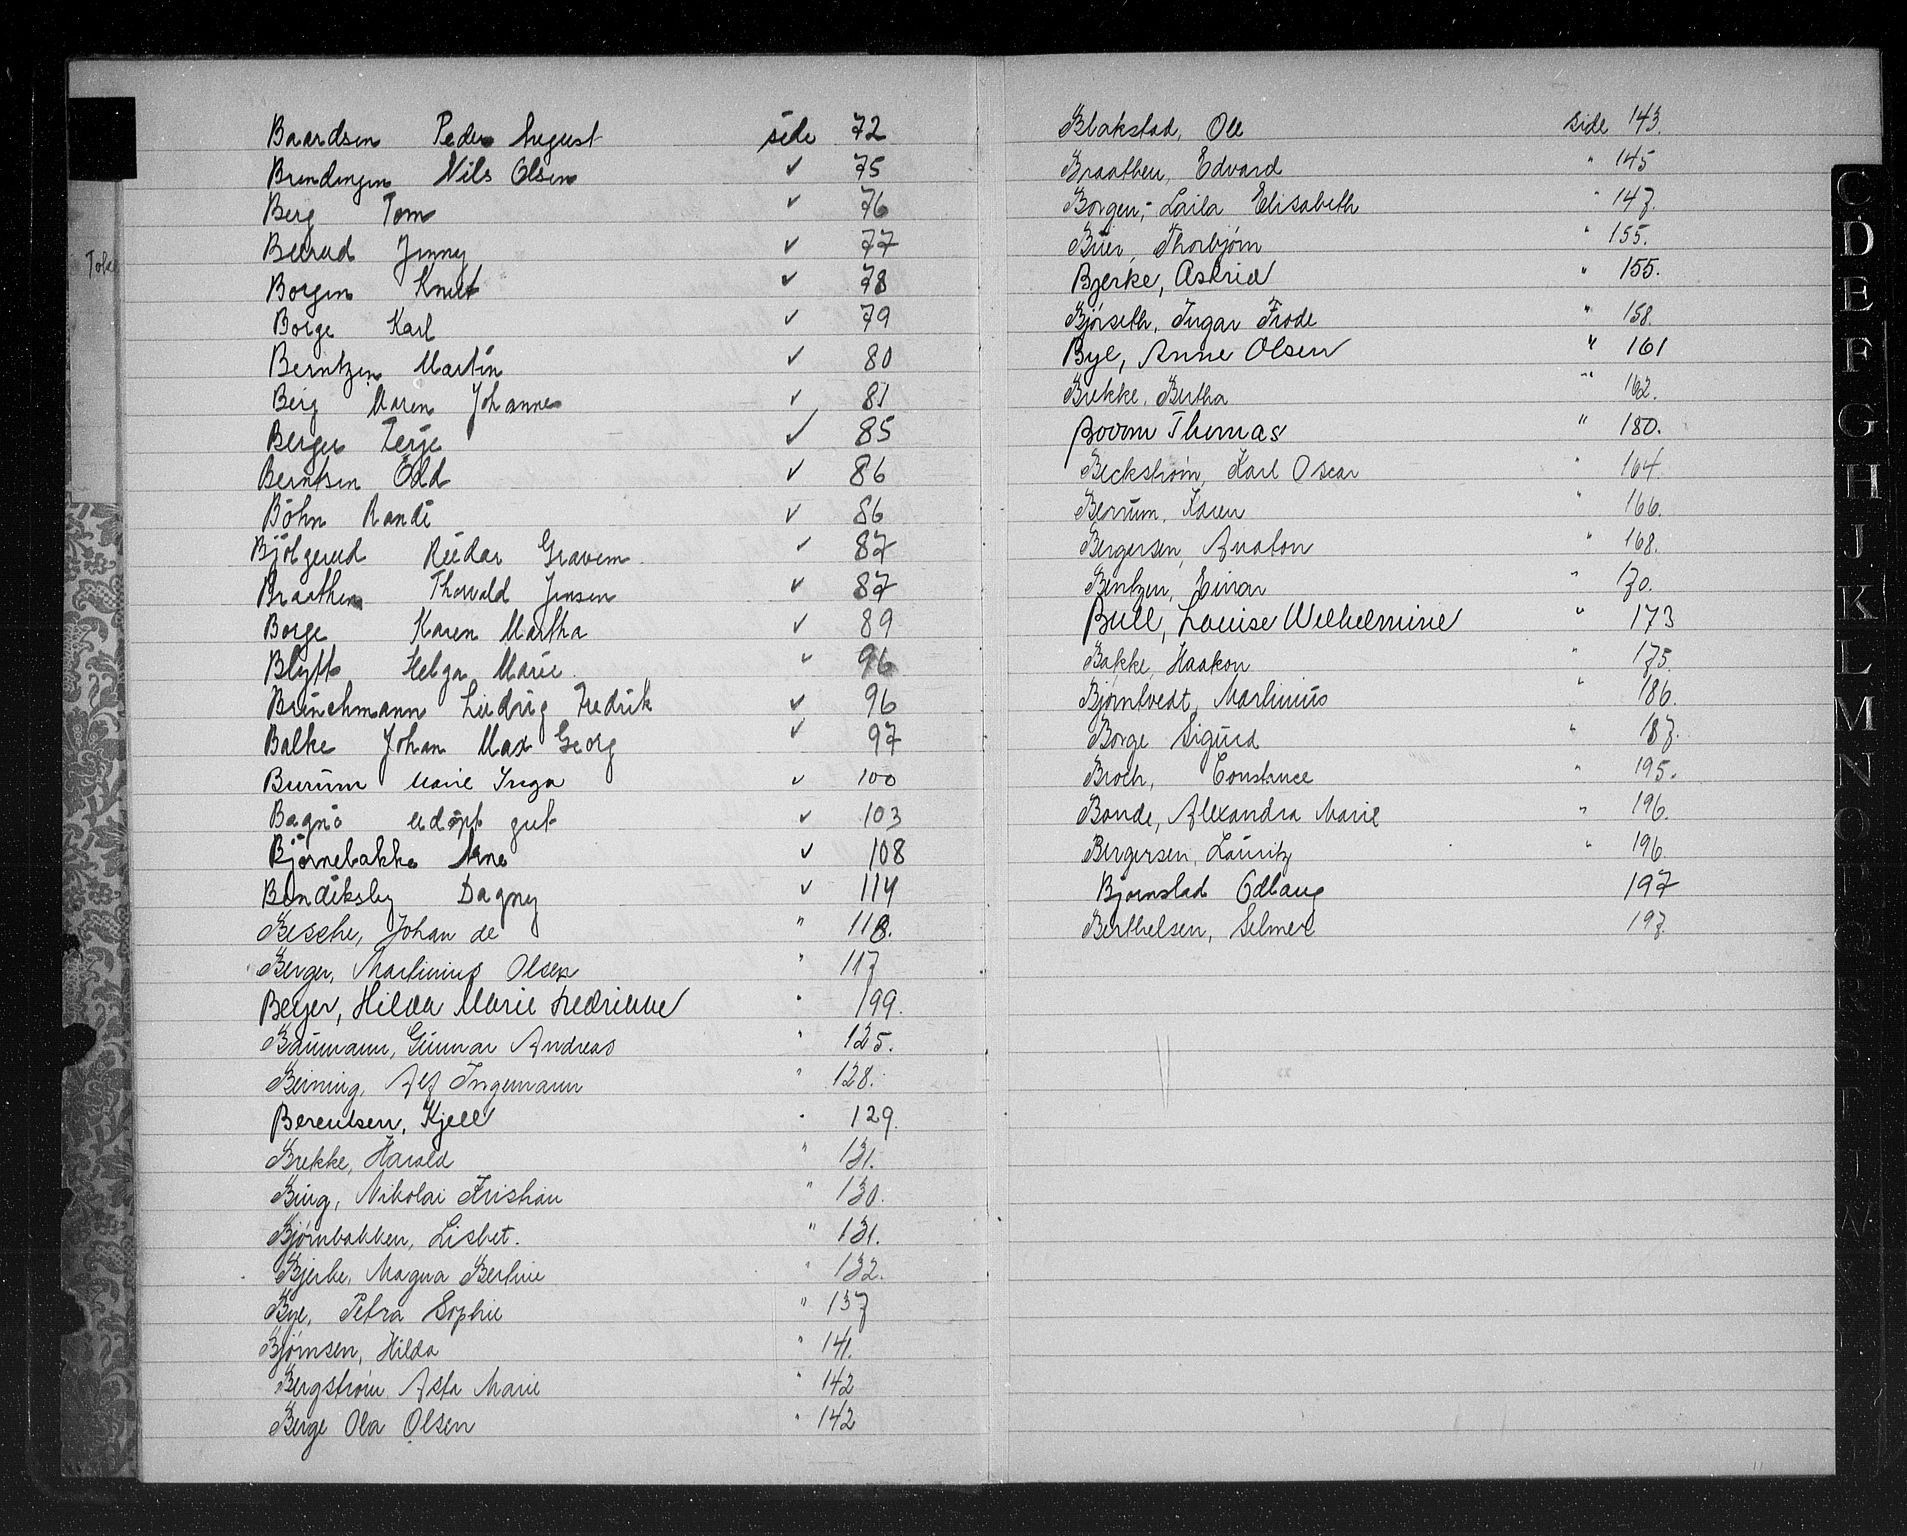 Baardsen Peder August side 72
Brendengen Nils Olsen ✓ 75
Berg Tom ✓ 76
Beirud Jenny ✓ 77
Borgen Knut ✓ 78
Borge Karl ✓ 79
Berntzen Martin ✓ 80
Berg Maren Johanne ✓ 81
Berger Terje ✓ 85
Berntsen Odd ✓ 86
Böhn Randi ✓ 86
Bjölgerud Reidar Gravem ✓ 87
Braathen Thorvald Jensen ✓ 87
Borge Karen Martha ✓ 89
Blytt Helga Marie ✓ 96
Brinchmann Ludvig Fredrik ✓ 96
Balke Johan Max Georg ✓ 97
Burum Marie Inga ✓ 100
Bagnö adopt gut ✓ 103
Bjørnebakke Arne ✓ 108
Bendiksby Dagny ✓ 114
Besche, Johan de " 118.
Berger, Martinius Olsen " 117
Beyer, Hilda Marie Fredrikke " 199.
Baumann, Gunnar Andreas " 125.
Beining, Alf Ingemann " 128.
Berentsen, Kjell " 129.
Brekke, Harald " 131.
Bing, Nikolai Kristian " 130.
Bjørnbakken, Lisbet. " 131.
Bjerke, Magna Bertine " 132.
Bye, Petra Sophie " 137
Bjørnsen, Hilda " 141.
Bergstrøm Asta Marie " 142
Berge Ola Olsen " 142
Blakstad, Ole side 143.
Braathen, Edvard " 145
Borgen, Laila Elisabeth " 147.
Buer, Thorbjørn " 155.
Bjerke, Astrid " 155.
Bjørseth, Ingar Frode " 158.
Bye, Anne Olsen " 161
Brekke, Bertha " 162.
Bovom Thomas " 180.
Beckstrøm, Karl Oscar " 164.
Berrum, Karen " 166.
Bergersen, Anaton " 168.
Bentzen, Einar " 170.
Bull, Louise Wilhelmine " 173
Bakke, Haakon " 175.
Bjørntvedt, Martinius " 186.
Borge Sigurd " 187.
Broch, Constance " 195.
Bonde, Alexandra Marie " 196.
Bergersen, Lauritz " 196.
Bjørnstad Odlaug 197
Berthelsen, Selmer 197.
C
D
E
F
G
H
J
K
L
M
N
O